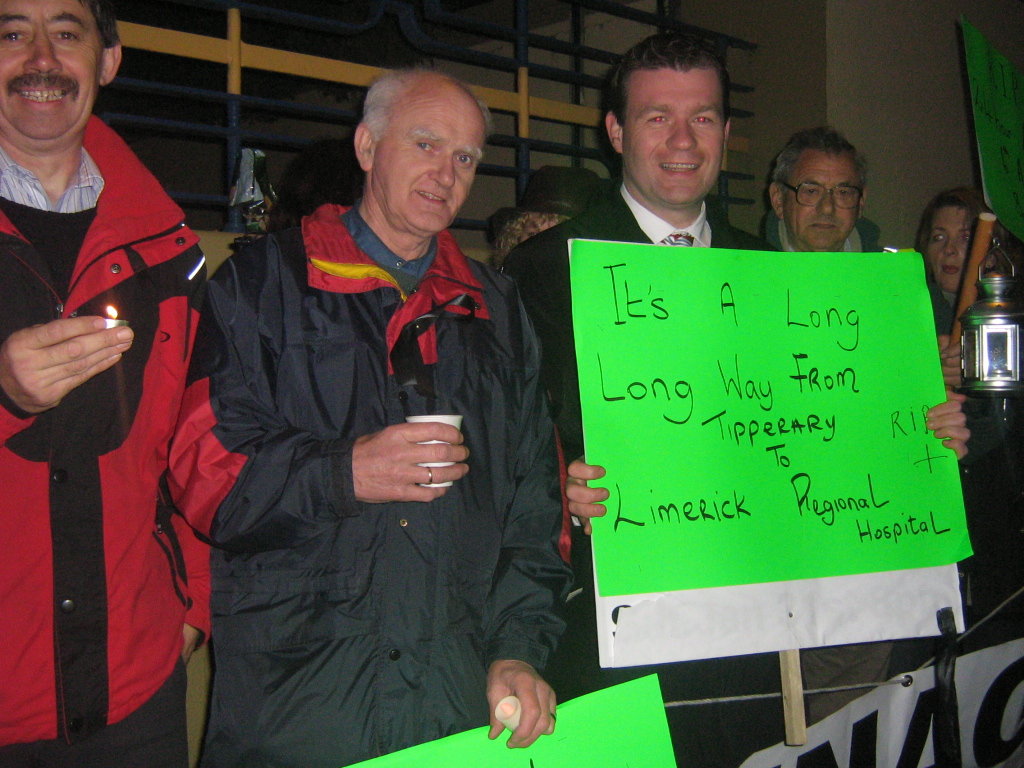 It's A Long
Long Way From
Tipperary
To
Limerick Regional
Hospital
RIP
RIP
NAC